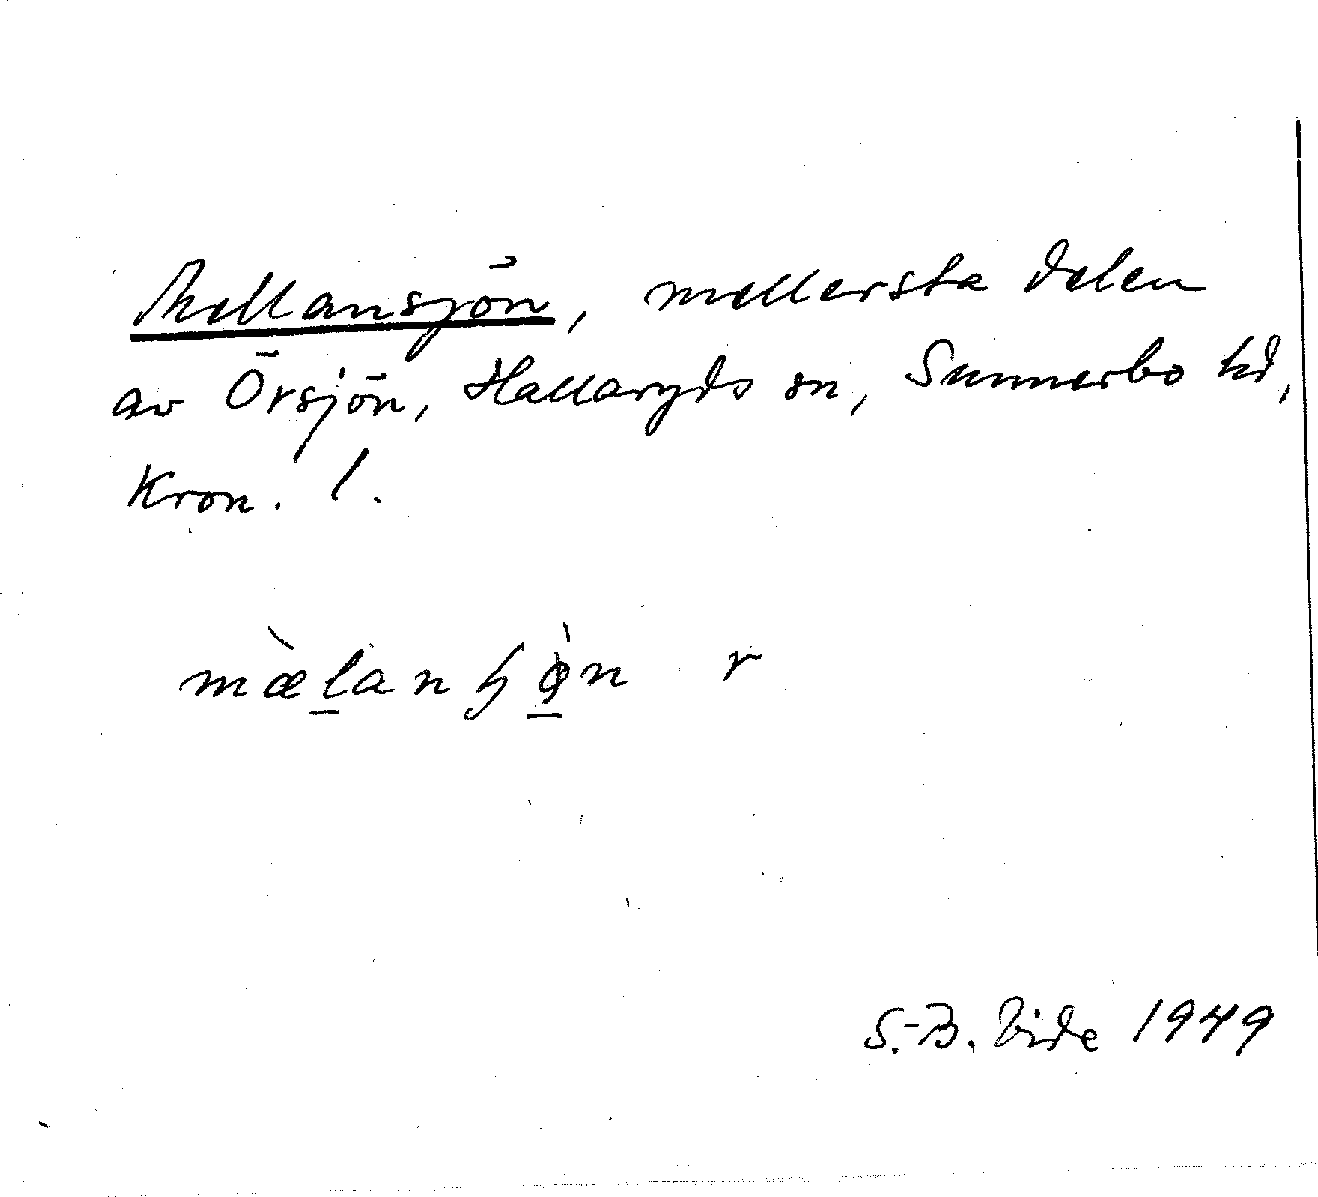 Mellansjön, mellersta delen
av Örsjön, Hallaryds sn, Sunnerbo hd,
Kron. l.
mæ̀l̠anɧø̠̀n r
S.-B. Vide 1949